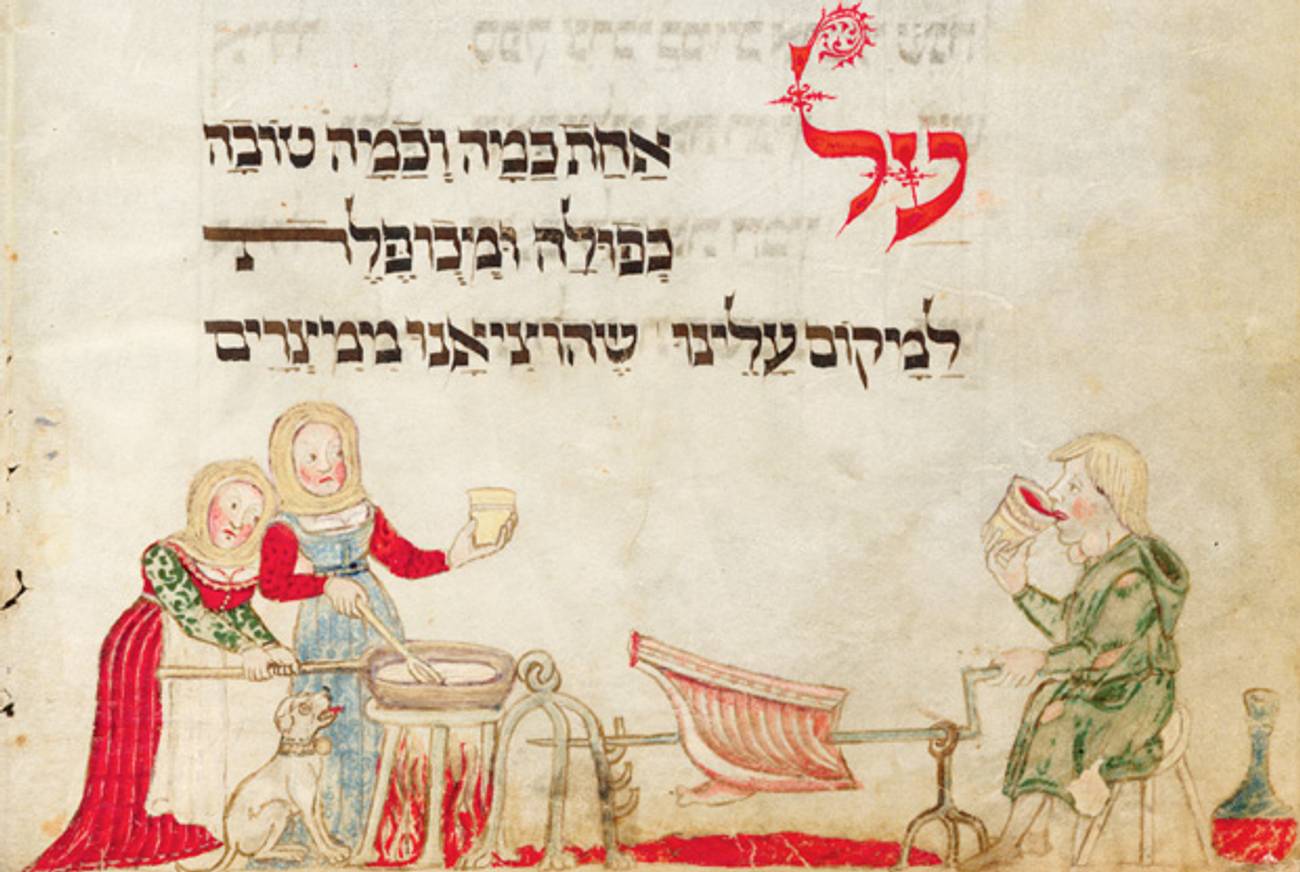 על אחת כמה וכמה טובה
כפולה ומכופלת
למקום עלינו שהוציאנו ממצרים